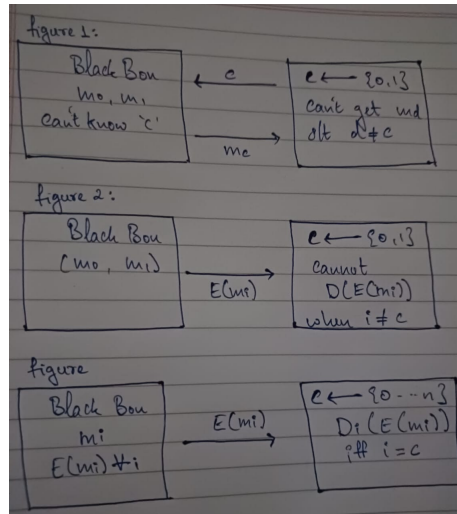 figure 1:
Black Box
m0, m1
can't know 'c'
c
mc
c ← {0,1}
can't get md
s/t d≠c
figure 2:
Black Box
(m0, m1)
E(mi)
c ← {0,1}
cannot
D(E(mi))
when i ≠ c
figure
Black Box
mi
E(mi) ∀ i
E(mi)
c ← {0 --- n}
Di(E(mi))
iff i = c